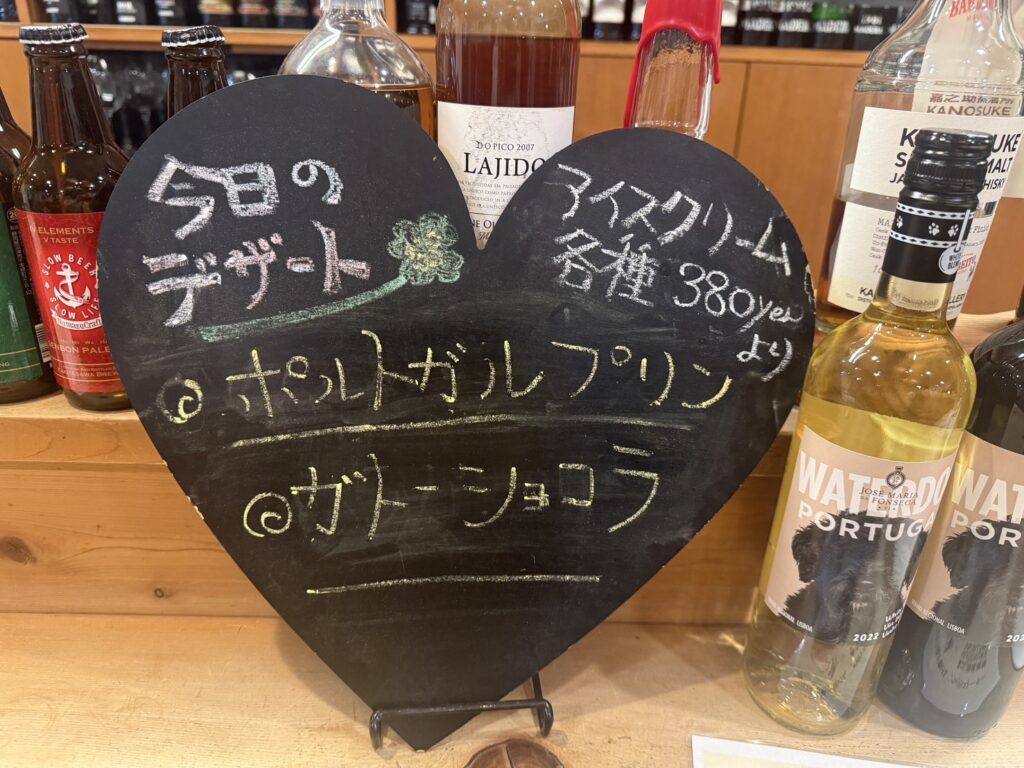 今日の
デザート
アイスクリーム
各種 380yen
より
ポルトガル プリン
ガトーショコラ
DO PICO 2007
LAJIDO
ELEMENTS
Y TASTE
SLOW BEER
SLOW LIFE
嘉之助蒸溜所
KANOSUKE
WATERDO
JOSÉ MARIA
DA FONSECA
PORTUGA
LISBOA
2022
WAT
PORTU
LISBOA